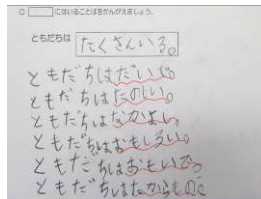 ◎□にはいることばをかんがえましょう。
ともだちは たくさんいる。
ともだちはだいじ。
ともだちはたのしい。
ともだちはなかよし。
ともだちはおもしろい。
ともだちはおもいで。
ともだちはなからもの